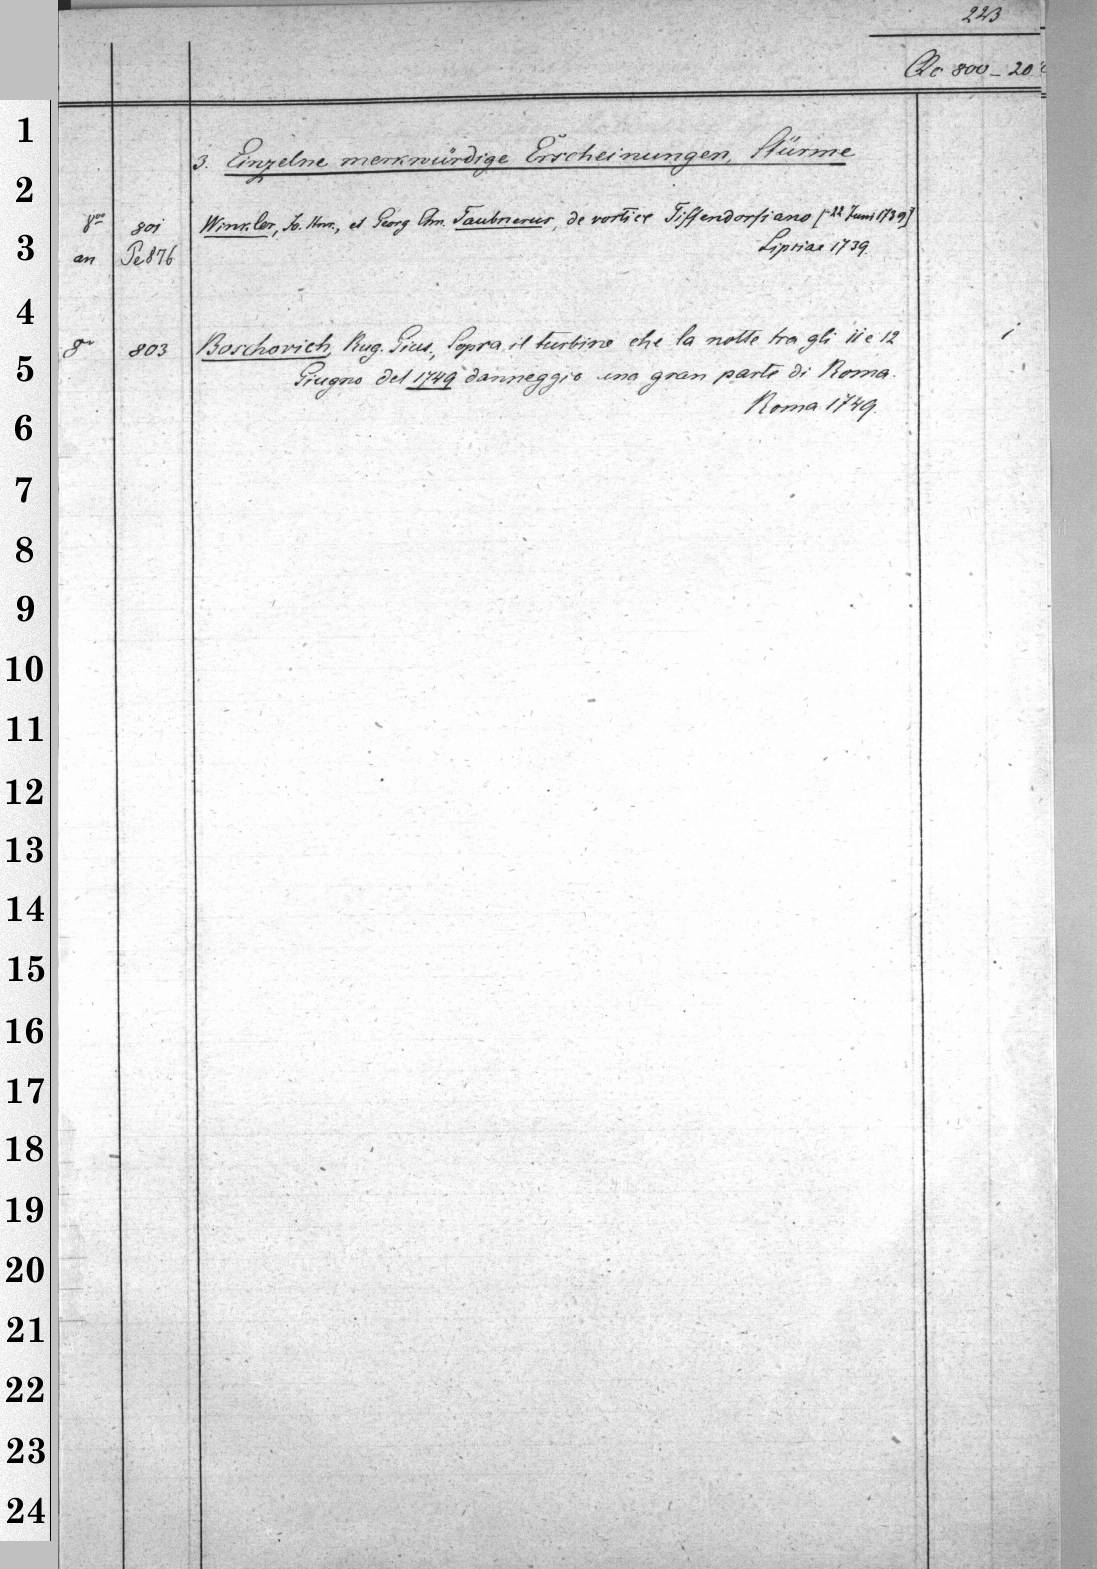 223
Qc 800-20
3. Einzelne merkwürdige Erscheinungen, Stürme
8vo 801 Winkler, Jo. Hnr., et Georg Chn. Taubnerus, de vortice Tiffendorfiano [22 Juni 1739]
an Pe 876 Lipsiae 1739.
8vo 803 Boschovich, Rug. Gius., Sopra il turbine che la notte tra gli 11 e 12 1
Giugno del 1749 danneggio una gran parte di Roma.
Roma 1749.
1
2
3
4
5
6
7
8
9
10
11
12
13
14
15
16
17
18
19
20
21
22
23
24